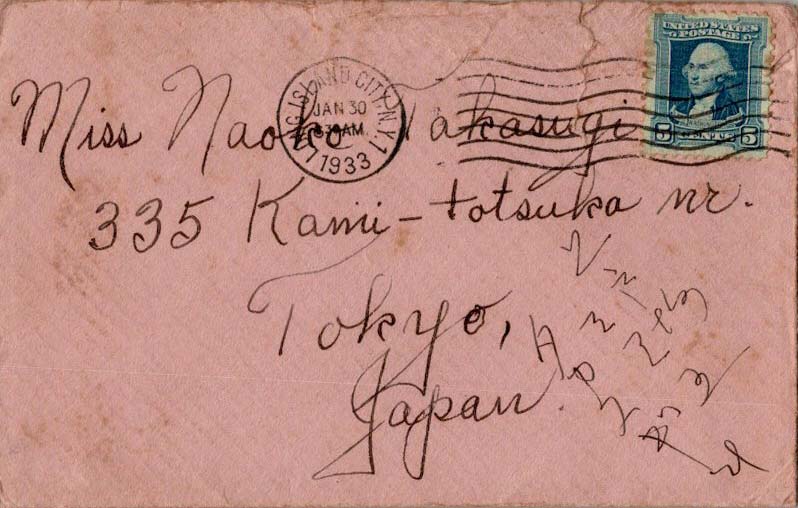 UNITED STATES
POSTAGE
5 CENTS 5
LONG ISLAND CITY, N.Y. 1
JAN 30
AM
1933
Miss Naoko Takasugi
335 Kami-totsuka nr.
Tokyo,
Japan.